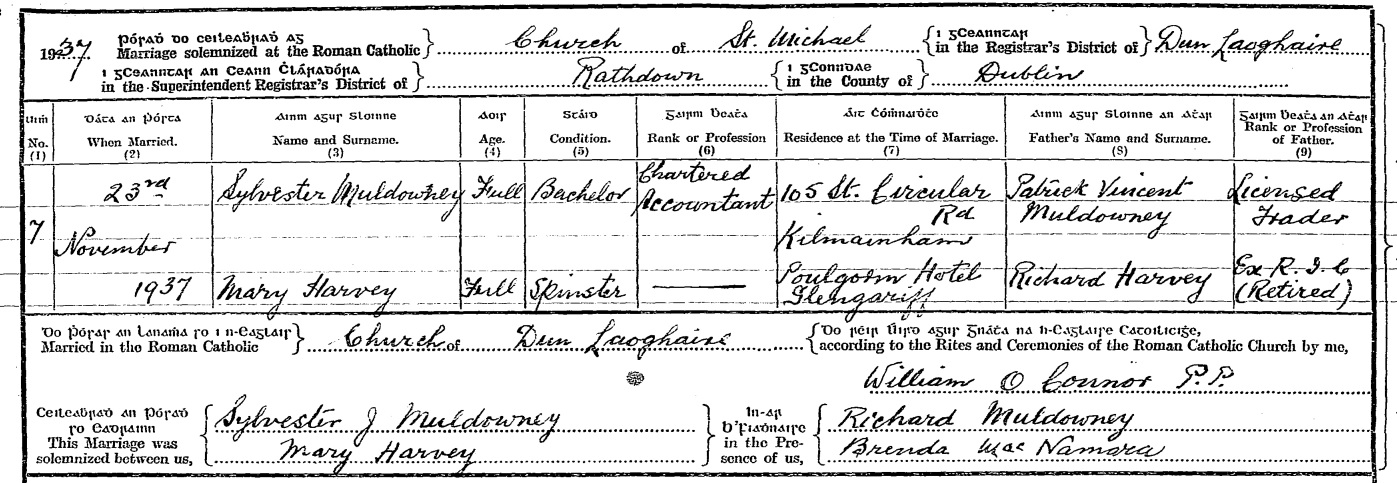 Pórad do ceileabrad ag
1937 Marriage solemnized at the Roman Catholic } Church of St. Michael { i gCeanntar in the Registrar's District of } Dun Laoghaire
i gCeanntar an Ceann Cláradóra in the Superintendent Registrar's District of } Rathdown { i gConndae in the County of } Dublin
Uim No. (1) | Dáta an Pórta When Married. (2) | Ainm agur Sloinne Name and Surname. (3) | Aoir Age. (4) | Stáid Condition. (5) | Gairm Beata Rank or Profession (6) | Áit Cómnaidte Residence at the Time of Marriage. (7) | Ainm agur Sloinne an Atar Father's Name and Surname. (8) | Gairm Beata an Atar Rank or Profession of Father. (9)
7 | 23rd November 1937 | Sylvester Muldowney | Full | Bachelor | Chartered Accountant | 105 St. Circular Rd Kilmainham | Patrick Vincent Muldowney | Licensed Trader
Mary Harvey | Full | Spinster | — | Poulgorm Hotel Glengariff | Richard Harvey | Ex R. I. C (Retired)
Do Pórad an Lanama ro i n-Eaglair Married in the Roman Catholic } Church of Dun Laoghaire { Do réir Úird agur Gnáta na h-Eaglaire Catoilicige, according to the Rites and Ceremonies of the Roman Catholic Church by me,
William O Connor P.P.
Ceileabrad an Pórad ro Eadrainn This Marriage was solemnized between us, { Sylvester J Muldowney
Mary Harvey
In-ar b'Fiadnaire in the Presence of us, { Richard Muldowney
Brenda Mac Namara